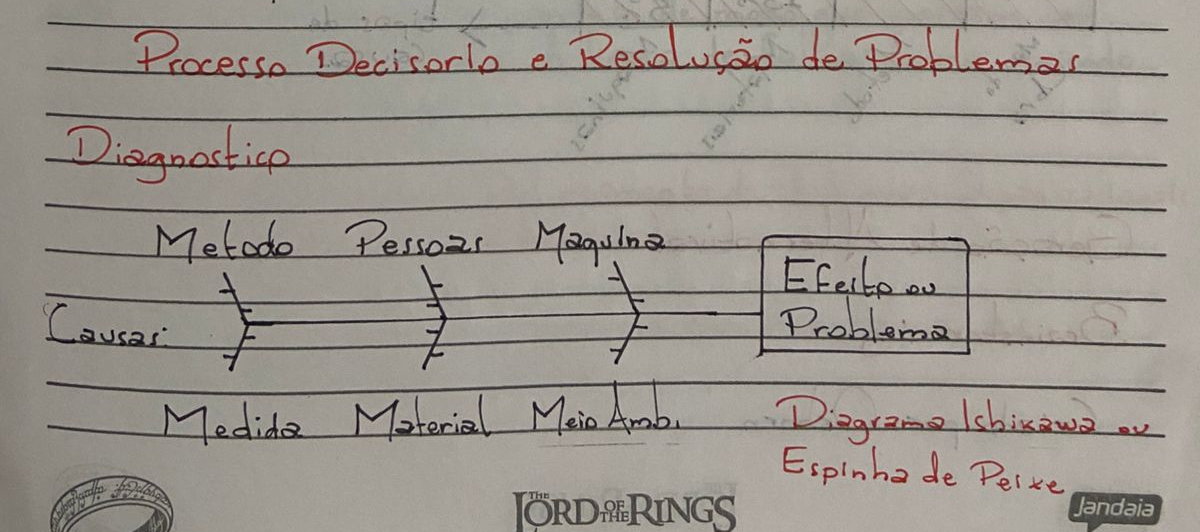 Processo Decisorio e Resolução de Problemas
Diagnostico
Metodo Pessoas Maquina
Efeito ou
Causas: Problema
Medida Material Meio Amb.
Diagrama Ishikawa ou
Espinha de Peixe
THE LORD OF THE RINGS
Jandaia